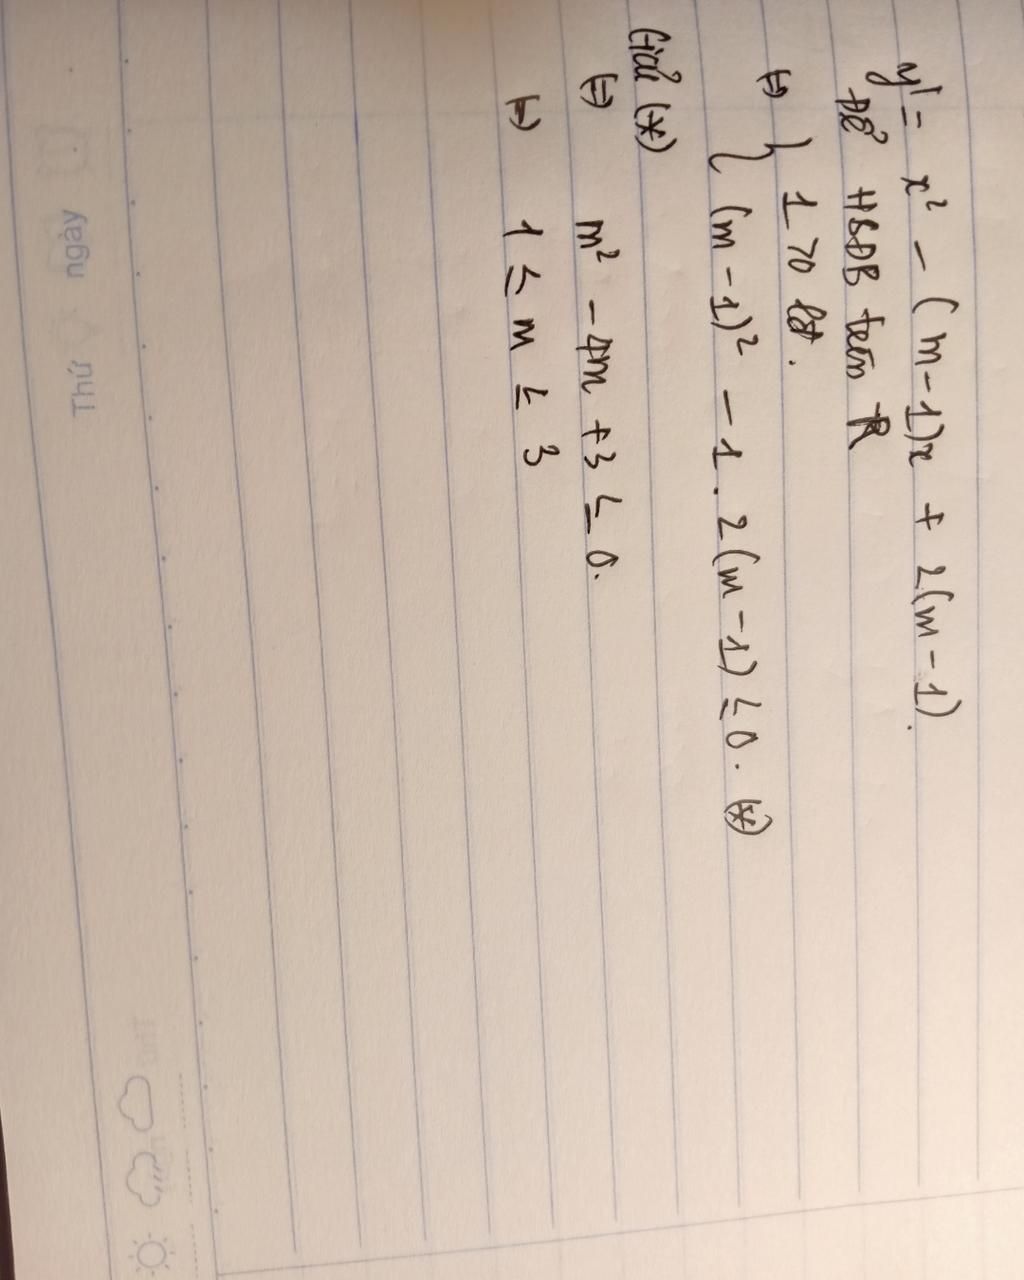 y' = x² - (m-1)x + 2(m-1).
Để HSĐB trên R
⇔ { 1 > 0 lđ.
(m-1)² - 1.2(m-1) ≤ 0. (*)
Giải (*)
⇔ m² - 4m + 3 ≤ 0.
⇔ 1 ≤ m ≤ 3
Thứ ngày